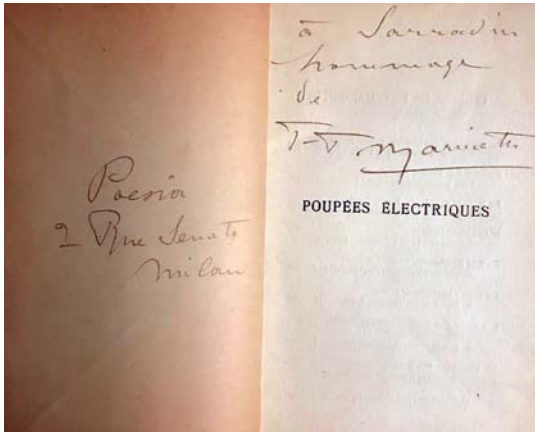 Poesia
2 Rue Senato
Milan
à Sarradin
hommage
de
F-T Marinetti
POUPÉES ÉLECTRIQUES